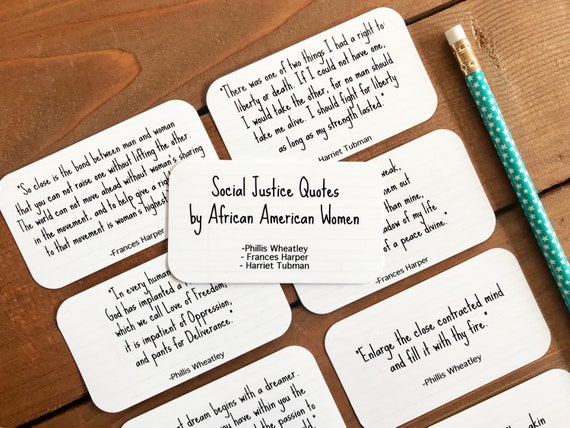 "There was one of two things I had a right to:
liberty or death. If I could not have one,
I would take the other, for no man should
take me alive. I should fight for liberty
as long as my strength lasted."
Harriet Tubman
"So close is the bond between man and woman
that you can not raise one without lifting the other.
The world can not move ahead without woman's sharing
in the movement, and to help give a right
to that movement is woman's highest
-Frances Harper
Social Justice Quotes
by African American Women
-Phillis Wheatley
- Frances Harper
- Harriet Tubman
weak,
them out
than mine,
of my life
of a peace divine."
-Frances Harper
"In every human
God has implanted a
which we call Love of Freedom;
it is impatient of Oppression,
and pants for Deliverance."
-Phillis Wheatley
"Enlarge the close contracted mind
and fill it with thy fire."
-Phillis Wheatley
dream begins with a dreamer.
you have within you the
the passion to
world."